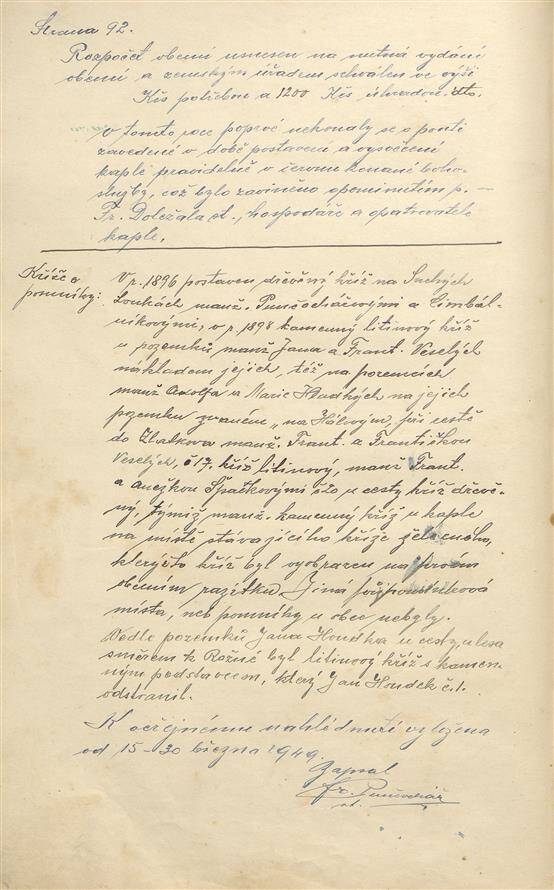 Strana 92.
Rozpočet obecní usnesen na nutná vydání
obecní a zemským úřadem schválen ve výši
Kčs potřebou a 1200 Kčs úhradou.
V tomto roce poprvé nekonaly se o pouti
zavedené v době postavení a vysvěcení
kaple pravidelně v červnu konané boho-
služby, což bylo zaviněno opominutím p.
Fr. Doležala st., hospodáře a opatrovatele
kaple.
Kříže a
pomníky:
V r. 1896 postaven dřevěný kříž na Suchých
Loukách manž. Punčochářovými a Cimbál-
níkovými, v r. 1898 kamenný litinový kříž
u pozemků manž Jana a Frant. Veselých
nákladem jejich, též na pozemcích
manž Adolfa a Marie Hladkých na jejich
pozemku zvaném „na Hálovým, při cestě
do Zbalkova manž. Frant. a Františkou
Veselých, č 17. kříž litinový, manž Frant.
a Anežkou Špatkovými u cesty kříž dřevě-
ný, týmiž manž. kamenný kříž u kaple
na místě stávajícího kříže železného,
kterýžto kříž byl vyobrazen na prvém
obecním razítku. Jiná
místa, neb pomníky u obce nebyly.
Vedle pozemků Jana Houdka u cesty, u lesa
směrem k Rožné byl litinový kříž s kamen-
ným podstavcem, který Jan Houdek č. 1.
odstranil.
K veřejnému nahlédnutí vyložena
od 15-30 března 1949.
Zapsal
Fr. Punčochář
st.